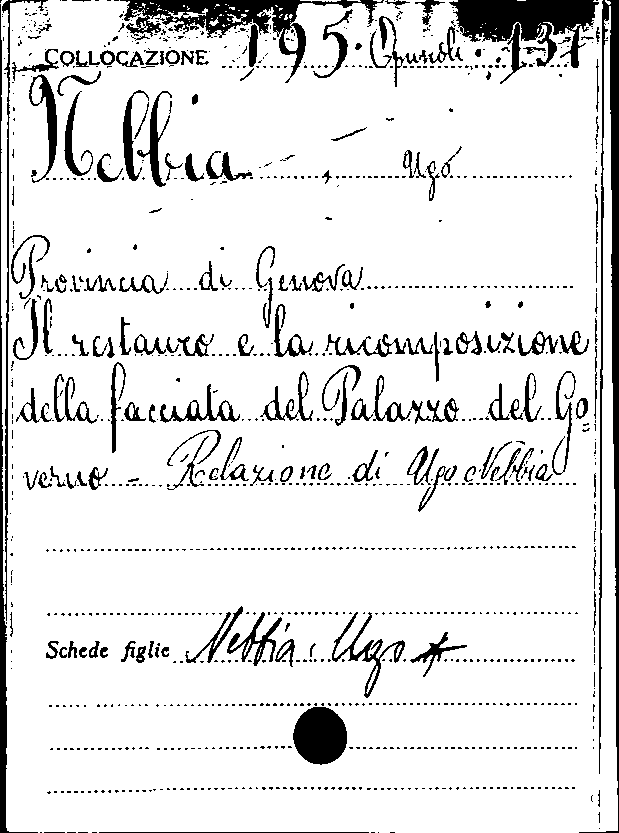 COLLOCAZIONE 195. Opuscoli. 131
Nebbia, Ugo
Provincia di Genova
Il restauro e la ricomposizione
della facciata del Palazzo del Go=
verno - Relazione di Ugo Nebbia
Schede figlie Nebbia, Ugo *